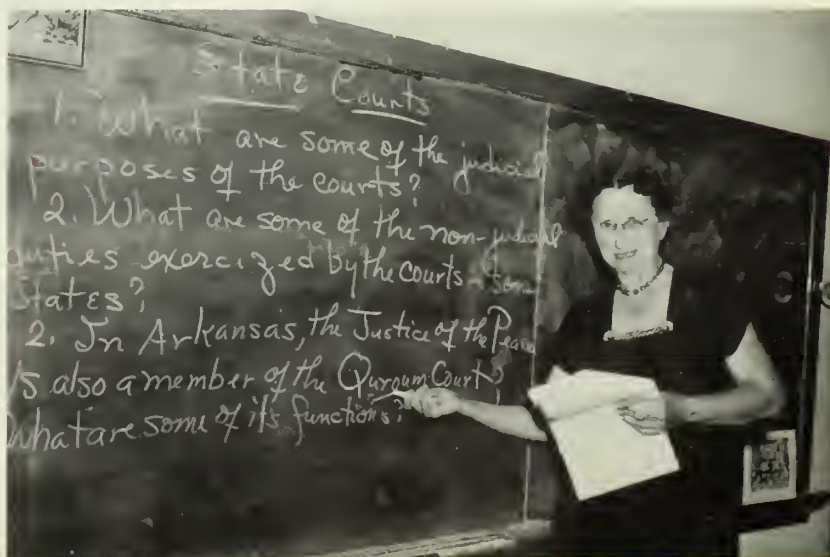 State Courts
1. What are some of the judicial
purposes of the courts?
2. What are some of the non-judicial
duties exercized by the courts in som
States?
2. In Arkansas, the Justice of the Peace
Is also a member of the Quroum Court?
What are some of it's functions?